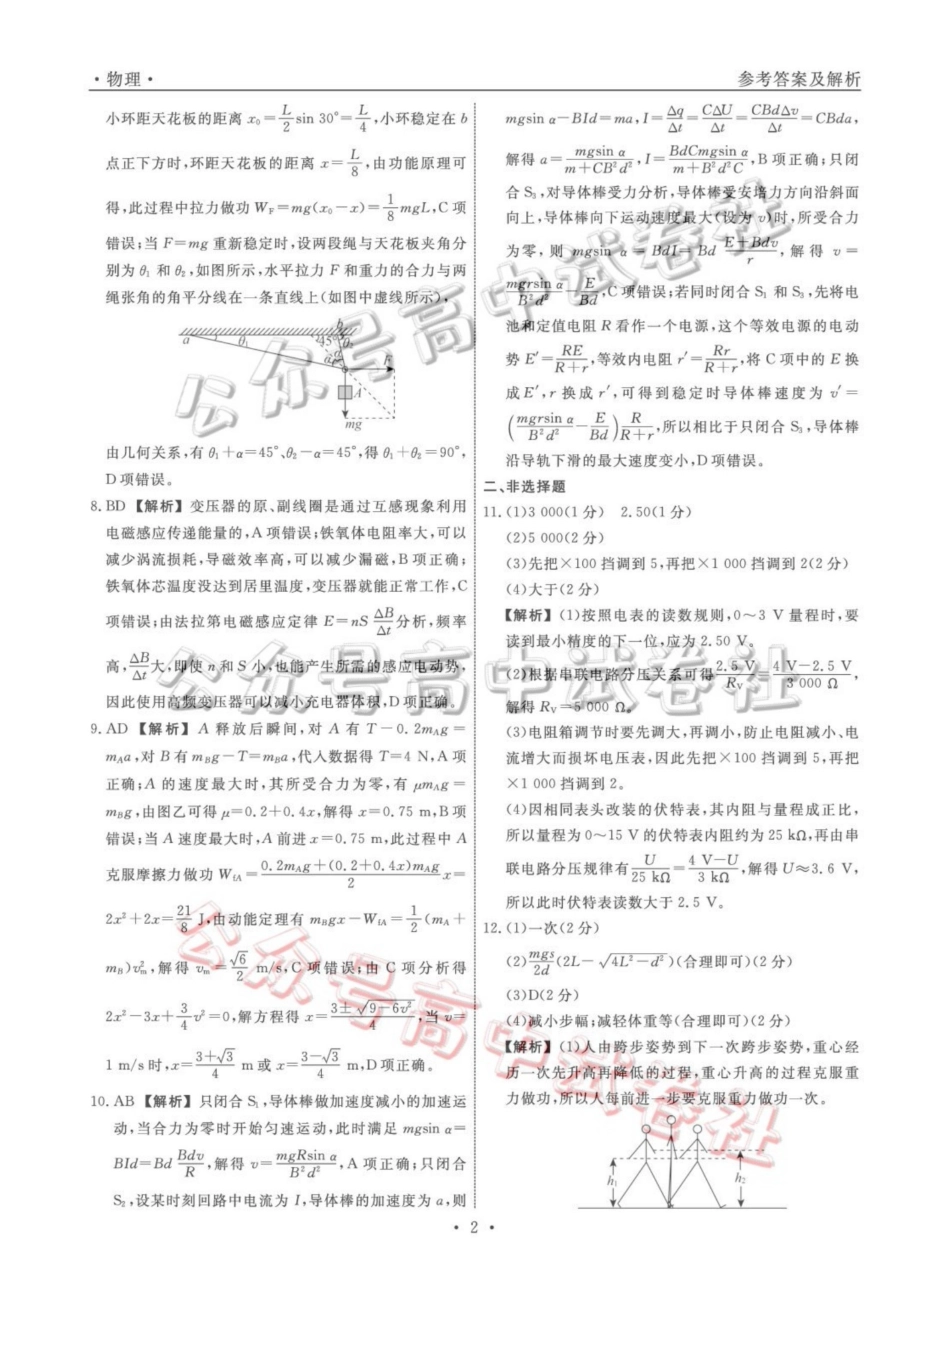 ·物理·
参考答案及解析
小环距天花板的距离 x₀=L/2 sin 30°=L/4,小环稳定在 b
点正下方时,环距天花板的距离 x=L/8,由功能原理可
得,此过程中拉力做功 W_F=mg(x₀-x)=1/8 mgL,C 项
错误;当 F=mg 重新稳定时,设两段绳与天花板夹角分
别为 θ₁ 和 θ₂,如图所示,水平拉力 F 和重力的合力与两
绳张角的角平分线在一条直线上(如图中虚线所示),
a θ₁ 45° b θ₂
α F
A
mg
由几何关系,有 θ₁+α=45°、θ₂-α=45°,得 θ₁+θ₂=90°,
D 项错误。
8. BD 【解析】变压器的原、副线圈是通过互感现象利用
电磁感应传递能量的,A 项错误;铁氧体电阻率大,可以
减少涡流损耗,导磁效率高,可以减少漏磁,B 项正确;
铁氧体芯温度没达到居里温度,变压器就能正常工作,C
项错误;由法拉第电磁感应定律 E=nS ΔB/Δt 分析,频率
高,ΔB/Δt 大,即使 n 和 S 小,也能产生所需的感应电动势,
因此使用高频变压器可以减小充电器体积,D 项正确。
9. AD 【解析】A 释放后瞬间,对 A 有 T-0.2m_A g=
m_A a,对 B 有 m_B g-T=m_B a,代入数据得 T=4 N,A 项
正确;A 的速度最大时,其所受合力为零,有 μm_A g=
m_B g,由图乙可得 μ=0.2+0.4x,解得 x=0.75 m,B 项
错误;当 A 速度最大时,A 前进 x=0.75 m,此过程中 A
克服摩擦力做功 W_fA=(0.2m_A g+(0.2+0.4x)m_A g)/2 x=
2x²+2x=21/8 J,由动能定理有 m_B gx-W_fA=1/2(m_A+
m_B)v_m²,解得 v_m=√6/2 m/s,C 项错误;由 C 项分析得
2x²-3x+3/4 v²=0,解方程得 x=(3±√(9-6v²))/4,当 v=
1 m/s 时,x=(3+√3)/4 m 或 x=(3-√3)/4 m,D 项正确。
10. AB 【解析】只闭合 S₁,导体棒做加速度减小的加速运
动,当合力为零时开始匀速运动,此时满足 mgsin α=
BId=Bd Bdv/R,解得 v=mgRsin α/B²d²,A 项正确;只闭合
S₂,设某时刻回路中电流为 I,导体棒的加速度为 a,则
mgsin α-BId=ma,I=Δq/Δt=CΔU/Δt=CBdΔv/Δt=CBda,
解得 a=mgsin α/(m+CB²d²),I=BdCmgsin α/(m+B²d²C),B 项正确;只闭
合 S₃,对导体棒受力分析,导体棒受安培力方向沿斜面
向上,导体棒向下运动速度最大(设为 v)时,所受合力
为零,则 mgsin α=BdI=Bd (E+Bdv)/r,解得 v=
mgrsin α/B²d²-E/Bd,C 项错误;若同时闭合 S₁ 和 S₃,先将电
池和定值电阻 R 看作一个电源,这个等效电源的电动
势 E′=RE/(R+r),等效内电阻 r′=Rr/(R+r),将 C 项中的 E 换
成 E′,r 换成 r′,可得到稳定时导体棒速度为 v′=
(mgrsin α/B²d²-E/Bd)R/(R+r),所以相比于只闭合 S₃,导体棒
沿导轨下滑的最大速度变小,D 项错误。
二、非选择题
11. (1)3 000(1 分) 2.50(1 分)
(2)5 000(2 分)
(3)先把×100 挡调到 5,再把×1 000 挡调到 2(2 分)
(4)大于(2 分)
【解析】(1)按照电表的读数规则,0~3 V 量程时,要
读到最小精度的下一位,应为 2.50 V。
(2)根据串联电路分压关系可得 2.5 V/R_V=(4 V-2.5 V)/3 000 Ω,
解得 R_V=5 000 Ω。
(3)电阻箱调节时要先调大,再调小,防止电阻减小、电
流增大而损坏电压表,因此先把×100 挡调到 5,再把
×1 000 挡调到 2。
(4)因相同表头改装的伏特表,其内阻与量程成正比,
所以量程为 0~15 V 的伏特表内阻约为 25 kΩ,再由串
联电路分压规律有 U/25 kΩ=(4 V-U)/3 kΩ,解得 U≈3.6 V,
所以此时伏特表读数大于 2.5 V。
12. (1)一次(2 分)
(2)mgs/2d(2L-√(4L²-d²))(合理即可)(2 分)
(3)D(2 分)
(4)减小步幅;减轻体重等(合理即可)(2 分)
【解析】(1)人由跨步姿势到下一次跨步姿势,重心经
历一次先升高再降低的过程,重心升高的过程克服重
力做功,所以人每前进一步要克服重力做功一次。
h₁ h₂
· 2 ·
公众号高中试卷社
公众号高中试卷社
公众号高中试卷社